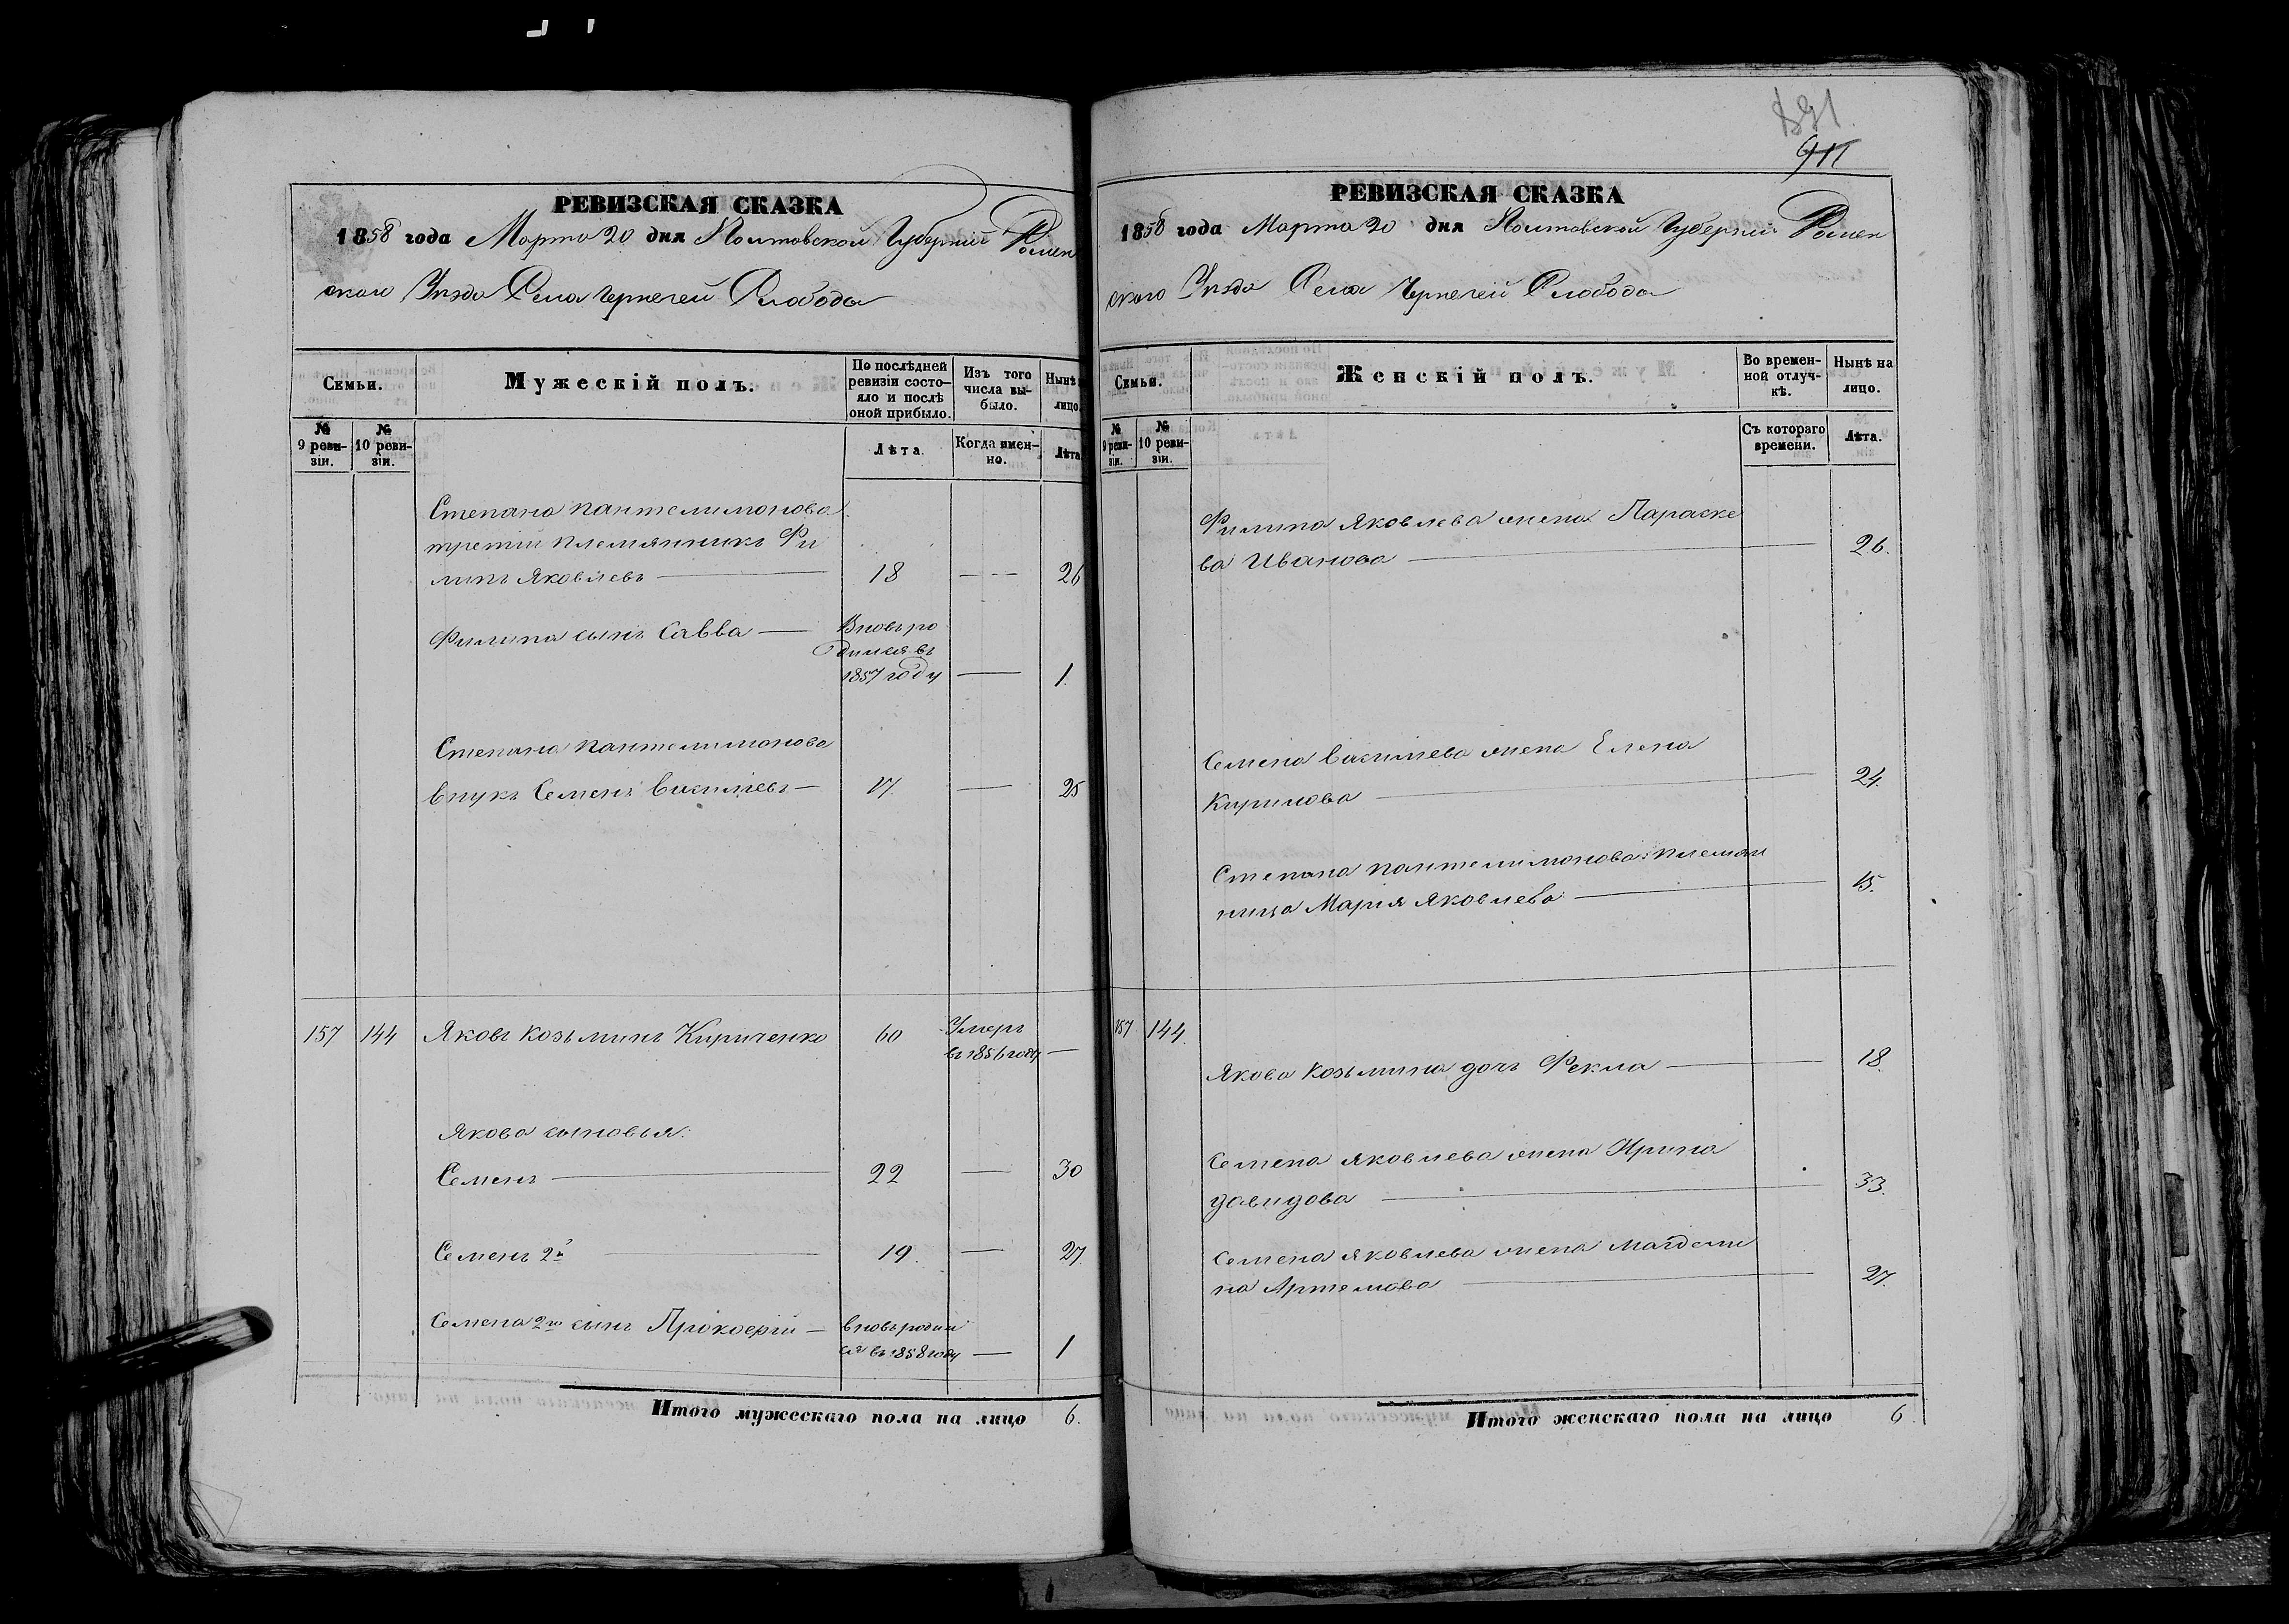 РЕВИЗСКАЯ СКАЗКА
1858 года Марта 20 дня Полтавской Губерніи Ромен
скаго Уѣзда Села Чернечей Слобода
Семьи.
Мужескій полъ.
По послѣдней ревизіи состояло и послѣ оной прибыло.
Изъ того числа выбыло.
Нынѣ лицо.
№ 9 ревизіи.
№ 10 ревизіи.
Лѣта.
Когда именно.
Лѣта
Степана Пантелимонова
третій племянникъ Фи
липъ Яковлевъ 18 26
Филипа сынъ Савва Вновь ро
дился въ
1857 году 1.
Степана Пантелимонова
внукъ Семенъ Василіевъ 17. 25
157 144 Яковъ Козьминъ Кириченко 60 Умеръ
въ 1856 году
Якова сыновья:
Семенъ 22 30
Семенъ 2й 19. 27.
Семена 2го сынъ Прокофій вновь родил
ся въ 1858 году 1
Итого мужескаго пола на лицо 6.
891.
911
РЕВИЗСКАЯ СКАЗКА
1858 года Марта 20 дня Полтавской Губерніи Ромен
скаго Уѣзда Села Чернечей Слобода
Семьи.
Женскій полъ.
Во временной отлучкѣ.
Нынѣ на лицо.
№ 9 ревизіи.
№ 10 ревизіи.
Съ котораго времени.
Лѣта.
Филипа Яковлева жена Параске
ва Иванова 26.
Семена Василіева жена Елена
Кирилова 24.
Степана Пантелимонова племян
ница Марія Яковлева 15.
157 144.
Якова Козьмина дочь Фекла 18.
Семена Яковлева жена Ирина
Давидова 33.
Семена Яковлева жена Магдали
на Артемова 27.
Итого женскаго пола на лицо 6